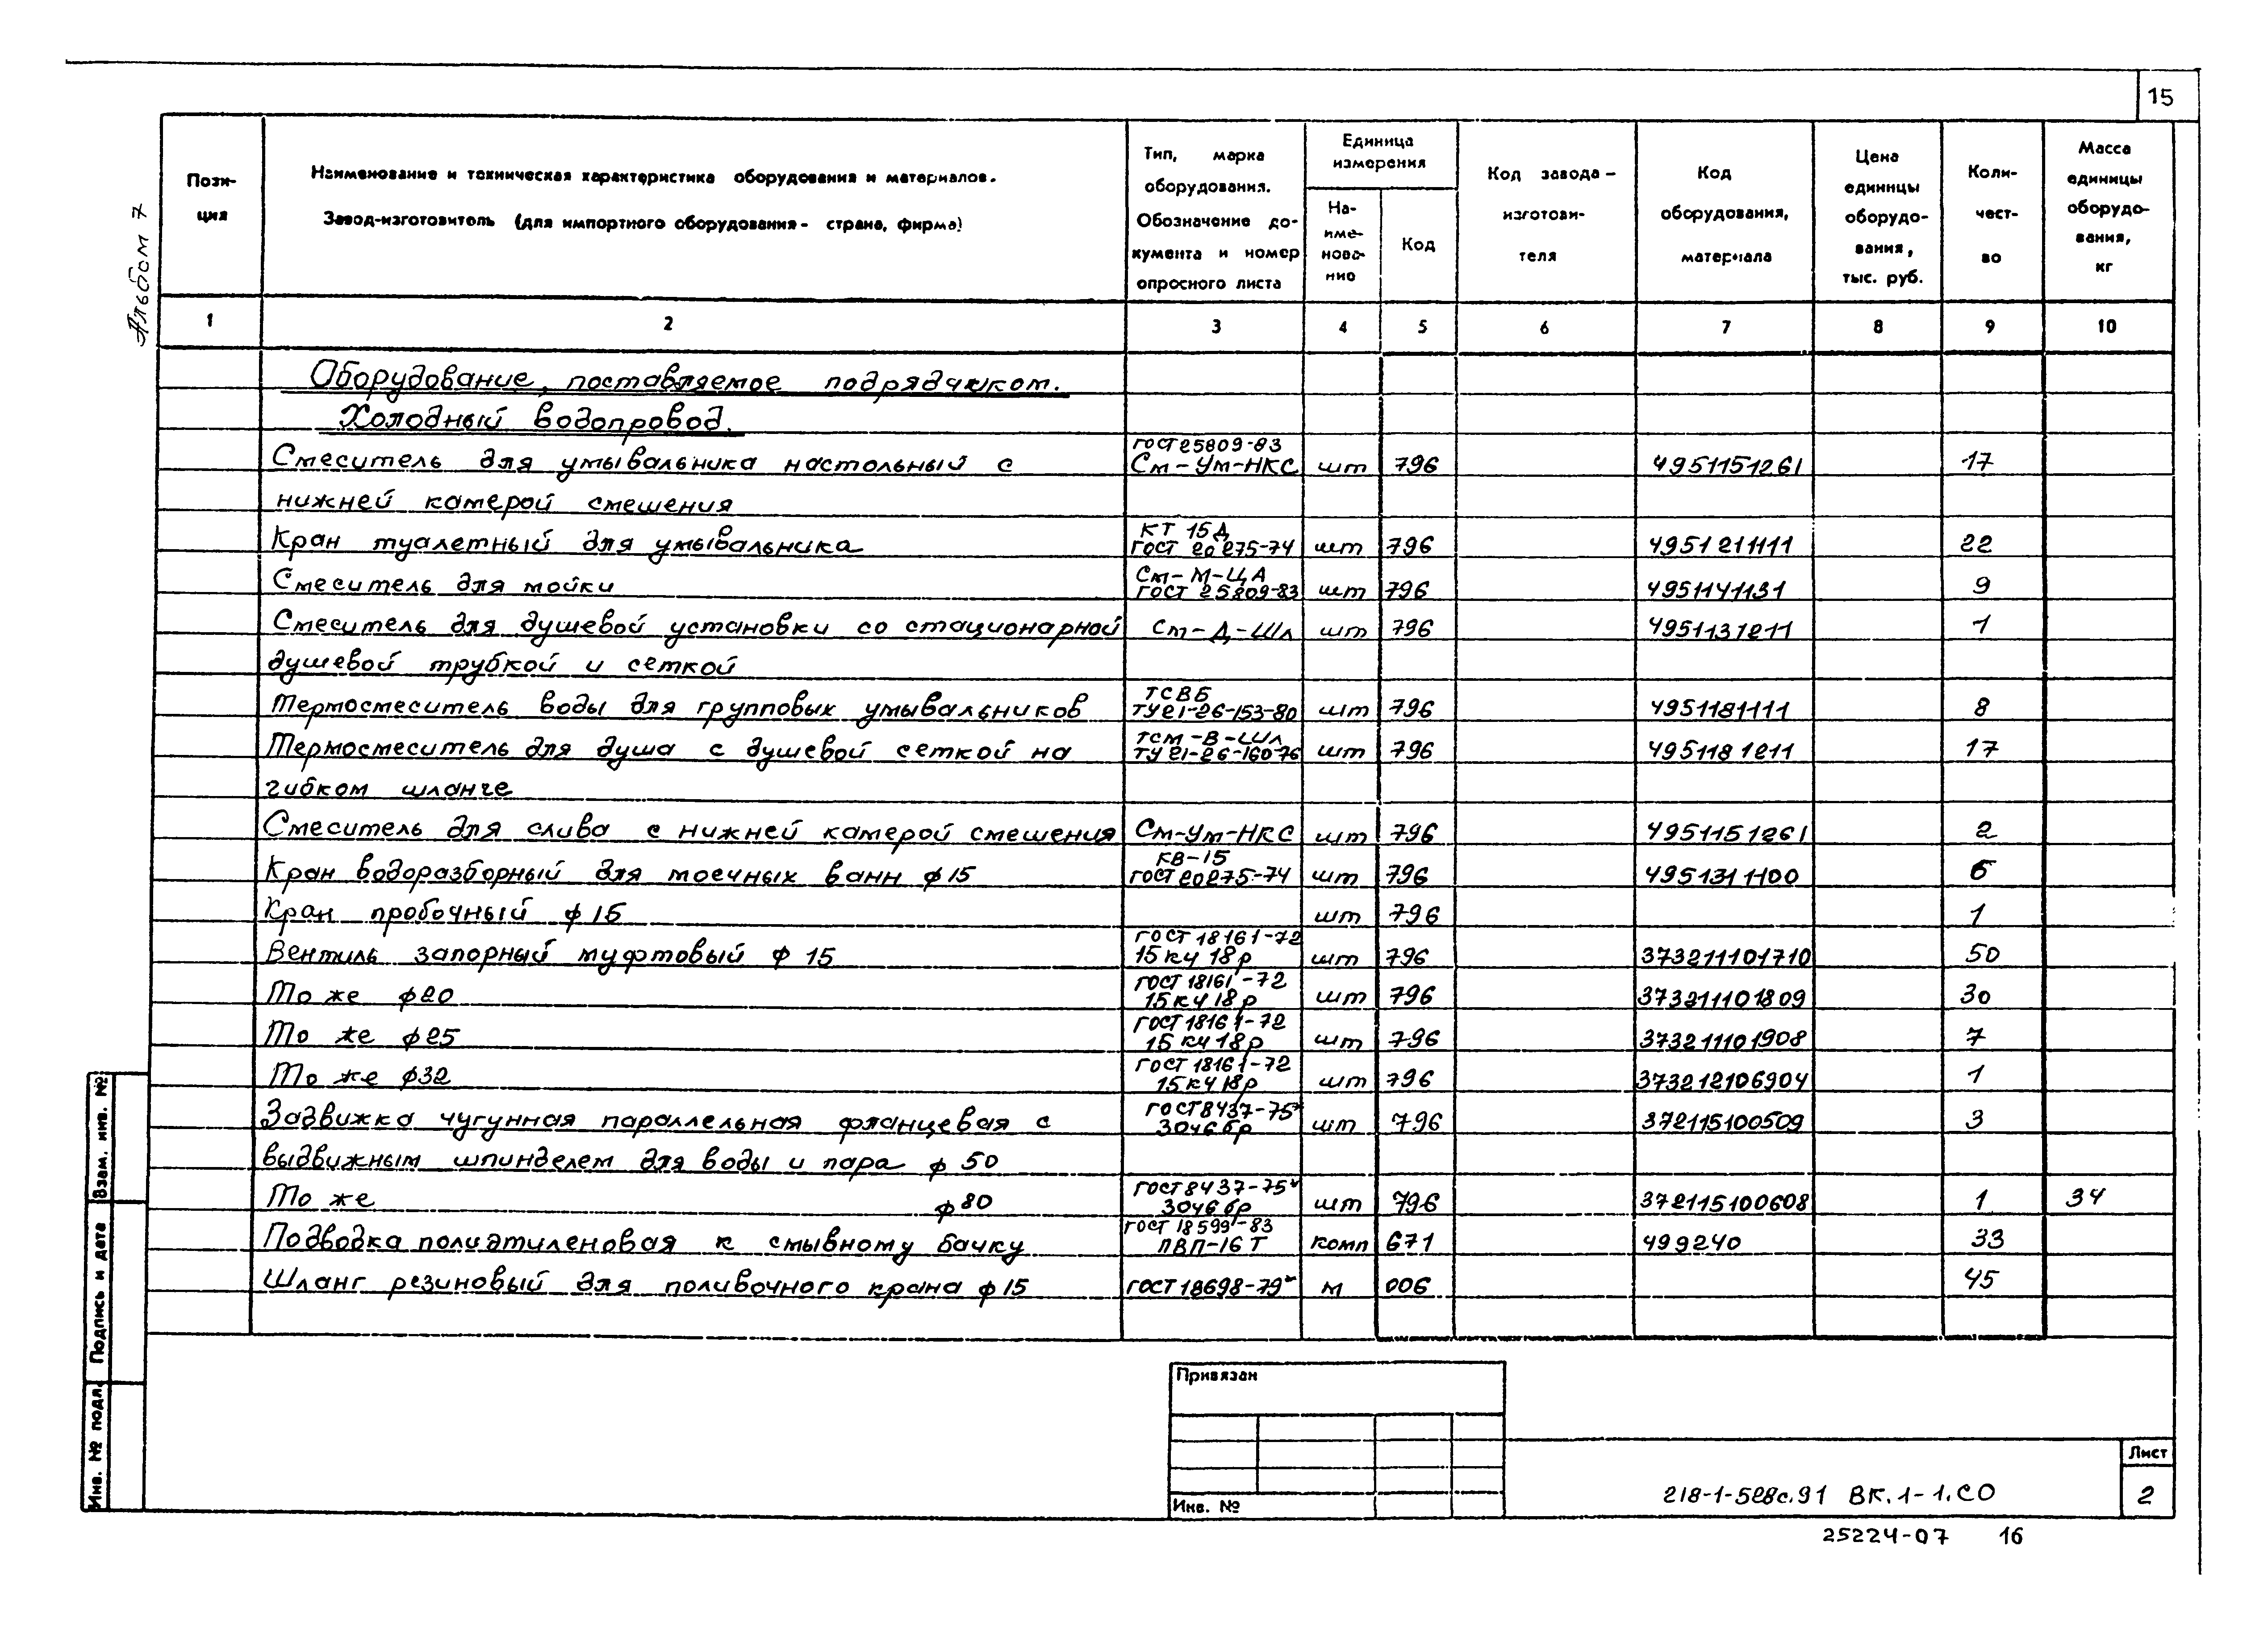 15
Альбом 7
Пози-
ция
Наименование и техническая характеристика оборудования и материалов.
Завод-изготовитель (для импортного оборудования - страна, фирма)
Тип, марка
оборудования.
Обозначение до-
кумента и номер
опросного листа
Единица
измерения
На-
име-
нова-
ние
Код
Код завода -
изготови-
теля
Код
оборудования,
материала
Цена
единицы
оборудо-
вания,
тыс. руб.
Коли-
чест-
во
Масса
единицы
оборудо-
вания,
кг
1 2 3 4 5 6 7 8 9 10
Оборудование, поставляемое подрядчиком.
Холодный водопровод.
ГОСТ 25809-83
Смеситель для умывальника настольный с См-Ум-НКС шт 796 4951151261 17
нижней камерой смешения
КТ 15Д
Кран туалетный для умывальника ГОСТ 20275-74 шт 796 4951211111 22
См-М-ЦА
Смеситель для мойки ГОСТ 25809-83 шт 796 4951141131 9
Смеситель для душевой установки со стационарной См-Д-Шл шт 796 4951131211 1
душевой трубкой и сеткой
ТСВБ
Термосмеситель воды для групповых умывальников ТУ21-26-153-80 шт 796 4951181111 8
ТСМ-В-Шл
Термосмеситель для душа с душевой сеткой на ТУ21-26-160-76 шт 796 4951181211 17
гибком шланге
Смеситель для слива с нижней камерой смешения См-Ум-НКС шт 796 4951151261 2
КВ-15
Кран водоразборный для моечных ванн ф15 ГОСТ 20275-74 шт 796 4951311100 6
Кран пробочный ф15 шт 796 1
ГОСТ 18161-72
Вентиль запорный муфтовый ф 15 15кч 18р шт 796 373211101710 50
ГОСТ 18161-72
То же ф20 15кч 18р шт 796 373211101809 30
ГОСТ 18161-72
То же ф25 15кч 18р шт 796 373211101908 7
ГОСТ 18161-72
То же ф32 15кч 18р шт 796 373212106904 1
ГОСТ 8437-75*
Задвижка чугунная параллельная фланцевая с 30ч6бр шт 796 372115100509 3
выдвижным шпинделем для воды и пара ф 50
ГОСТ 8437-75*
То же ф80 30ч6бр шт 796 372115100608 1 34
ГОСТ 18599-83
Подводка полиэтиленовая к смывному бачку ПВП-16Т комп 671 499240 33
Шланг резиновый для поливочного крана ф15 ГОСТ 18698-79* м 006 45
Взам. инв. №
Подпись и дата
Инв. № подл.
Привязан
Инв. №
218-1-528с.91 ВК.1-1.СО
Лист
2
25224-07 16